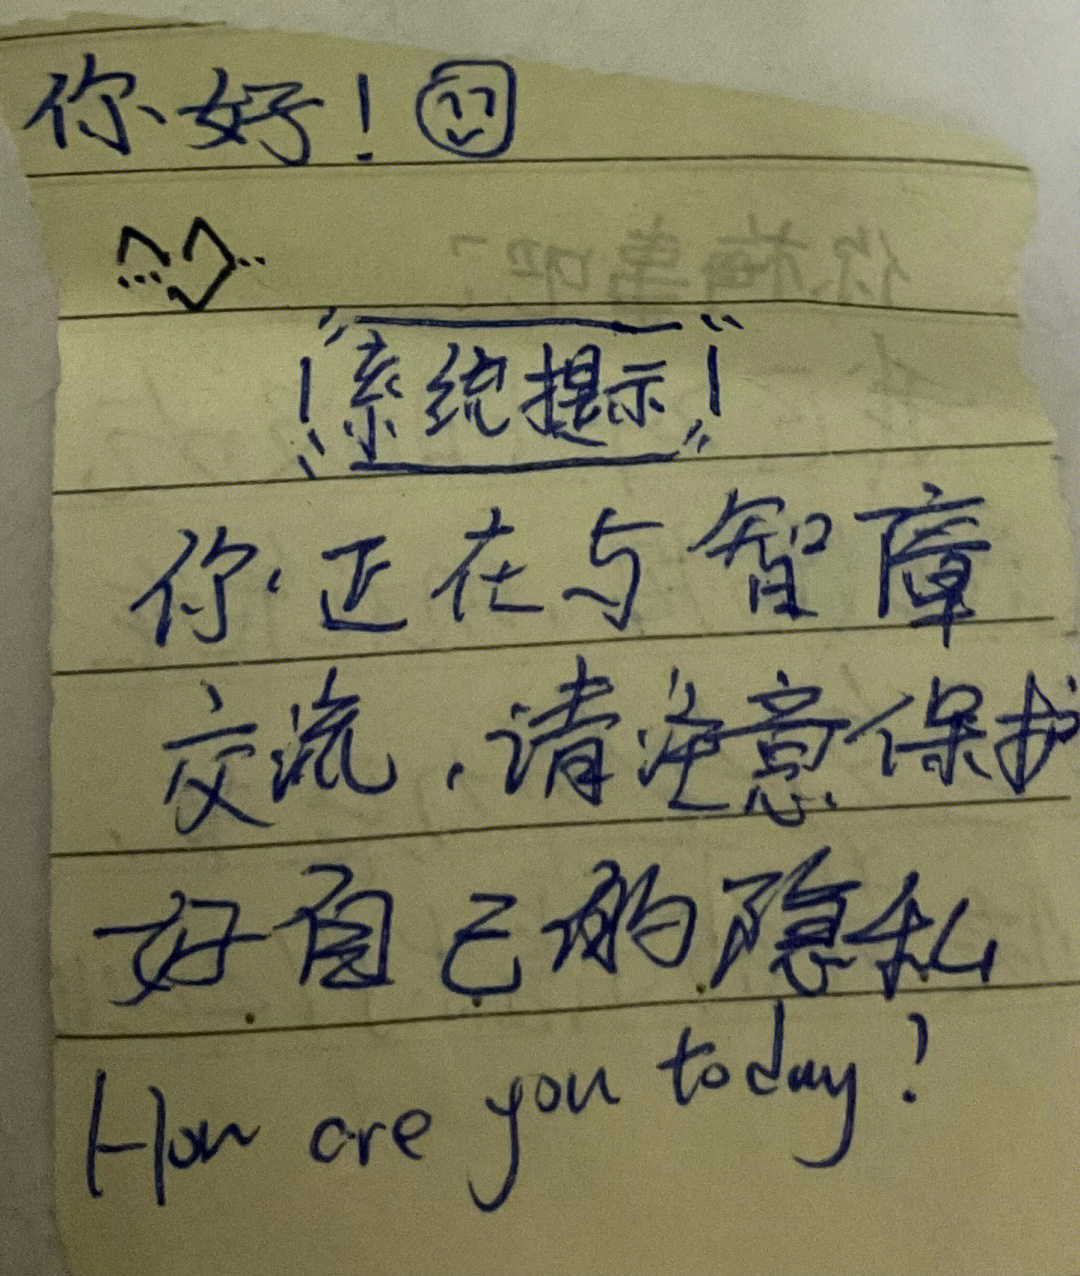 你好！
系统提示
你正在与智障
交流，请注意保护
好自己的隐私
How are you today?